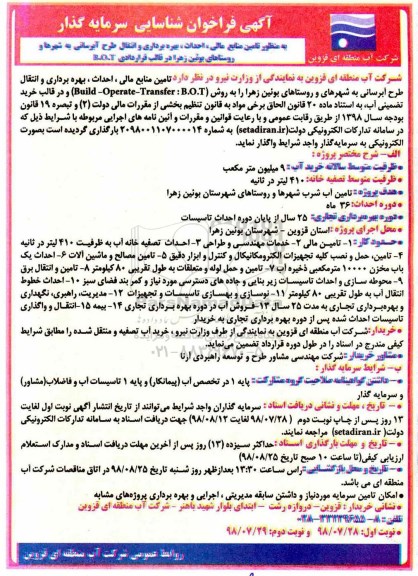 آگهی فراخوان شناسایی سرمایه گذار
به منظور تامین منابع مالی ، احداث ، بهره برداری و انتقال طرح آبرسانی به شهرها و
روستاهای بوئین زهرا در قالب قراردادی B.O.T
شرکت آب منطقه ای قزوین
شرکت آب منطقه ای قزوین به نمایندگی از وزارت نیرو در نظر دارد تامین منابع مالی ، احداث ، بهره برداری و انتقال
طرح آبرسانی به شهرهای و روستاهای بوئین زهرا را به روش (Build -Operate-Transfer : B.O.T) و در قالب خرید
تضمینی آب، به استناد ماده ۲۰ قانون الحاق برخی مواد به قانون تنظیم بخشی از مقررات مالی دولت (۲) و تبصره ۱۹ قانون
بودجه سـال ۱۳۹۸ از طریق رقابت عمومی و با رعایت قوانین و مقررات و آئین نامه های اجرایی مربوطه با شرایط ذیل که
در سامانه تدارکات الکترونیکی دولت(setadiran.ir) به شماره ۲۰۹۸۰۰۱۱۰۷۰۰۰۰۱۴ بارگذاری گردیده است بصورت
الکترونیکی به سرمایه‌گذار واجد شرایط واگذار نماید.
الف- شرح مختصر پروژه :
ظرفیت متوسط سالانه خرید آب : ۹ میلیون متر مکعب
ظرفیت متوسط تصفیه خانه: ۴۱۰ لیتر در ثانیه
هدف پروژه: تامین آب شرب شهرها و روستاهای شهرستان بوئین زهرا
دوره احداث: ۳۶ ماه
دوره بهره برداری تجاری: ۲۵ سال از پایان دوره احداث تاسیسات
محل اجرای پروژه: استان قزوین - شهرستان بوئین زهرا
حدود کار: ۱- تامین مالی ۲- خدمات مهندسی و طراحی ۳- احداث تصفیه خانه آب به ظرفیت ۴۱۰ لیتر در ثانیه
۴- تامین، حمل و نصب کلیه تجهیزات الکترومکانیکال و کنترل و ابزار دقیق ۵- تامین مصالح و ماشین آلات ۶- احداث یک
باب مخزن ۱۰۰۰۰ مترمکعبی ذخیره آب ۷- تامین و حمل لوله و متعلقات به طول تقریبی ۸۰ کیلومتر ۸- تامین و انتقال برق
۹- محوطه سازی و احداث تاسیسات زیر بنایی و جاده های دسترسی مورد نیاز و کمر بند فضای سبز ۱۰- احداث خطوط
انتقال آب به طول تقریبی ۸۰ کیلومتر ۱۱- نوسازی و بهسازی تاسیسات و تجهیزات ۱۲- مدیریت، راهبری، نگهداری
و بهره‌برداری تجاری به مدت ۲۵ سال ۱۳- فروش آب در دوره بهره برداری تجاری ۱۴- بیمه ۱۵- انتقال و واگذاری
تاسیسات احداث شده پس از دوره بهره برداری تجاری به خریدار
خریدار: شرکت آب منطقه ای قزوین به نمایندگی از طرف وزارت نیرو ، خرید آب تصفیه و منتقل شده را مطابق شرایط
کیفی مندرج در اسناد را در طول دوره قرارداد تضمین می‌نماید.
مشاور خریدار: شرکت مهندسی مشاور طرح و توسعه راهبردی آرتا
ب- شرایط سرمایه گذار :
داشتن گواهینامه صلاحیت گروه مشارکت: پایه ۱ در تخصص آب (پیمانکار) و پایه ۱ تاسیسات آب و فاضلاب(مشاور)
و سرمایه گذار
تاریخ ، مهلت و نشانی دریافت اسناد : سرمایه گذاران واجد شرایط می‌توانند از تاریخ انتشار آگهی نوبت اول لغایت
۱۳ روز پس از چاپ نوبت دوم ( ۹۸/۰۷/۲۸ لغایت ۹۸/۰۸/۱۲) جهت دریافت اسناد به سامانه تدارکات الکترونیکی
دولت( setadiran.ir) مراجعه نمایند.
تاریخ و مهلت بارگذاری اسناد: حداکثر سیزده (۱۳) روز پس از آخرین مهلت دریافت اسناد و مدارک استعلام
ارزیابی کیفی(تا ساعت ۱۰ صبح تاریخ ۹۸/۰۸/۲۵)
تاریخ ومحل بازگشایی: راس ساعت ۱۳:۳۰ بعدازظهر روز شنبه تاریخ ۹۸/۰۸/۲۵ در اتاق مناقصات شرکت آب
منطقه ای می باشد.
امکان تامین سرمایه موردنیاز و داشتن سابقه مدیریتی ، اجرایی و بهره برداری پروژه‌های مشابه
نشانی خریدار : قزوین - دروازه رشت - ابتدای بلوار شهید باهنر - شرکت آب منطقه ای قزوین
نوبت اول: ۹۸/۰۷/۲۸ و نوبت دوم: ۹۸/۰۷/۲۹
روابط عمومی شرکت آب منطقه ای قزوین